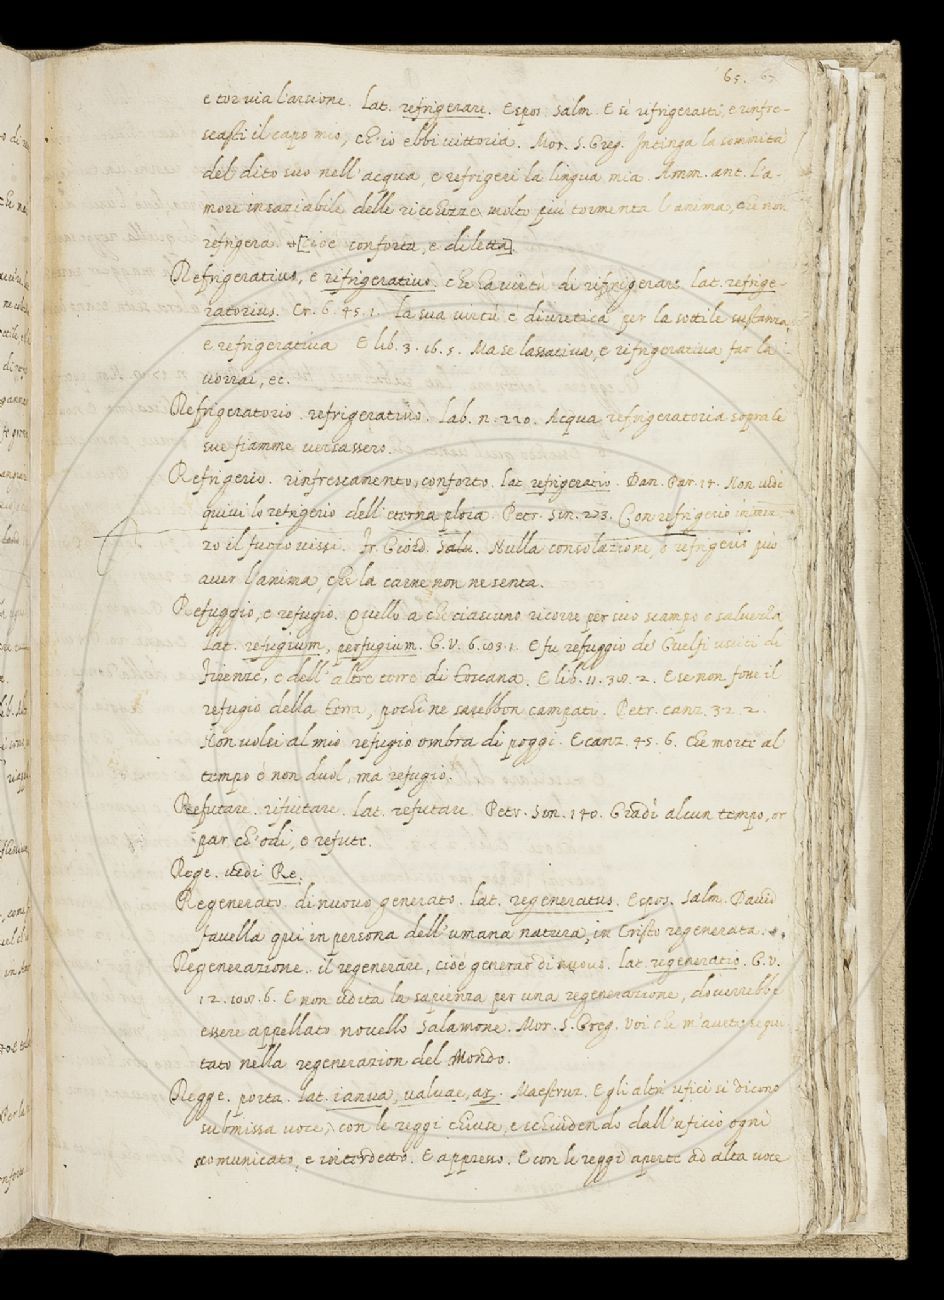 65. 67
e tor via l'arsione. Lat. refrigerare. Espos. Salm. E sì rifrigerasti, e rinfre-
scasti il capo mio, ch'io ebbi vittoria. Mor. S. Greg. Intinga la sommità
del dito suo nell'acqua, e refrigeri la lingua mia. Amm. ant. L'a-
more insaziabile delle ricchezze molto più tormenta l'anima, che non
refrigera. [cioè conforta, e diletta]
Refrigerativo, e rifrigerativo. che ha virtù di rifrigerare. lat. refrige-
ratorius. Cr. 6. 45. 1. la sua virtù è diuretica per la sottile sustanza,
e refrigerativa. E lib. 3. 16. 5. Ma se lassativa, e rifrigerativa far la
vorrai, ec.
Refrigeratorio. refrigerativo. Lab. n. 220. Acqua refrigeratoria sopra le
sue fiamme versassero.
Refrigerio. rinfrescamento, conforto. lat. refrigeratio. Dan. Par. 14. Non vide
quivi lo refrigerio dell'eterna ploia. Petr. Son. 273. Con refrigerio in mez-
zo il fuoco vissi. Fr. Giord. Salv. Nulla consolazione, o refrigerio può
aver l'anima, che la carne non ne senta.
Refuggio, e refugio. Quello a che ciascuno ricorre per suo scampo e salvezza
Lat. refugium, perfugium. G. V. 6. 103. 1. E fu refuggio de' Guelfi usciti di
Firenze, e dell'altre terre di Toscana. E lib. 11. 38. 2. E se non fosse il
refugio della terra, pochi ne sarebbon campati. Petr. canz. 32. 2.
Non volsi al mio refugio ombra di poggi. E canz. 45. 6. Che morte al
tempo è non duol, ma refugio.
Refutare. rifiutare. lat. refutare. Petr. Son. 140. Gradì alcun tempo, or
par ch'odi, e refute.
Rege. vedi Re.
Regenerato. di nuovo generato. lat. regeneratus. Espos. Salm. David
favella qui in persona dell'umana natura, in Cristo regenerata.
Regenerazione. il regenerare, cioè generar di nuovo. lat. regeneratio. G. V.
12. 108. 6. E non udita la sapienza per una regenerazione, doverrebbe
essere appellato novello Salamone. Mor. S. Greg. Voi che m'avete segui-
tato nella regenerazion del Mondo.
Regge. porta. lat. ianua, valvae, ar. Maestruz. E gli altri ufici si dicono
submissa voce, con le reggi chiuse, e schiudendo dall'uficio ogni
scomunicato, e interdetto. E appresso. E con le reggi aperte ad alta voce